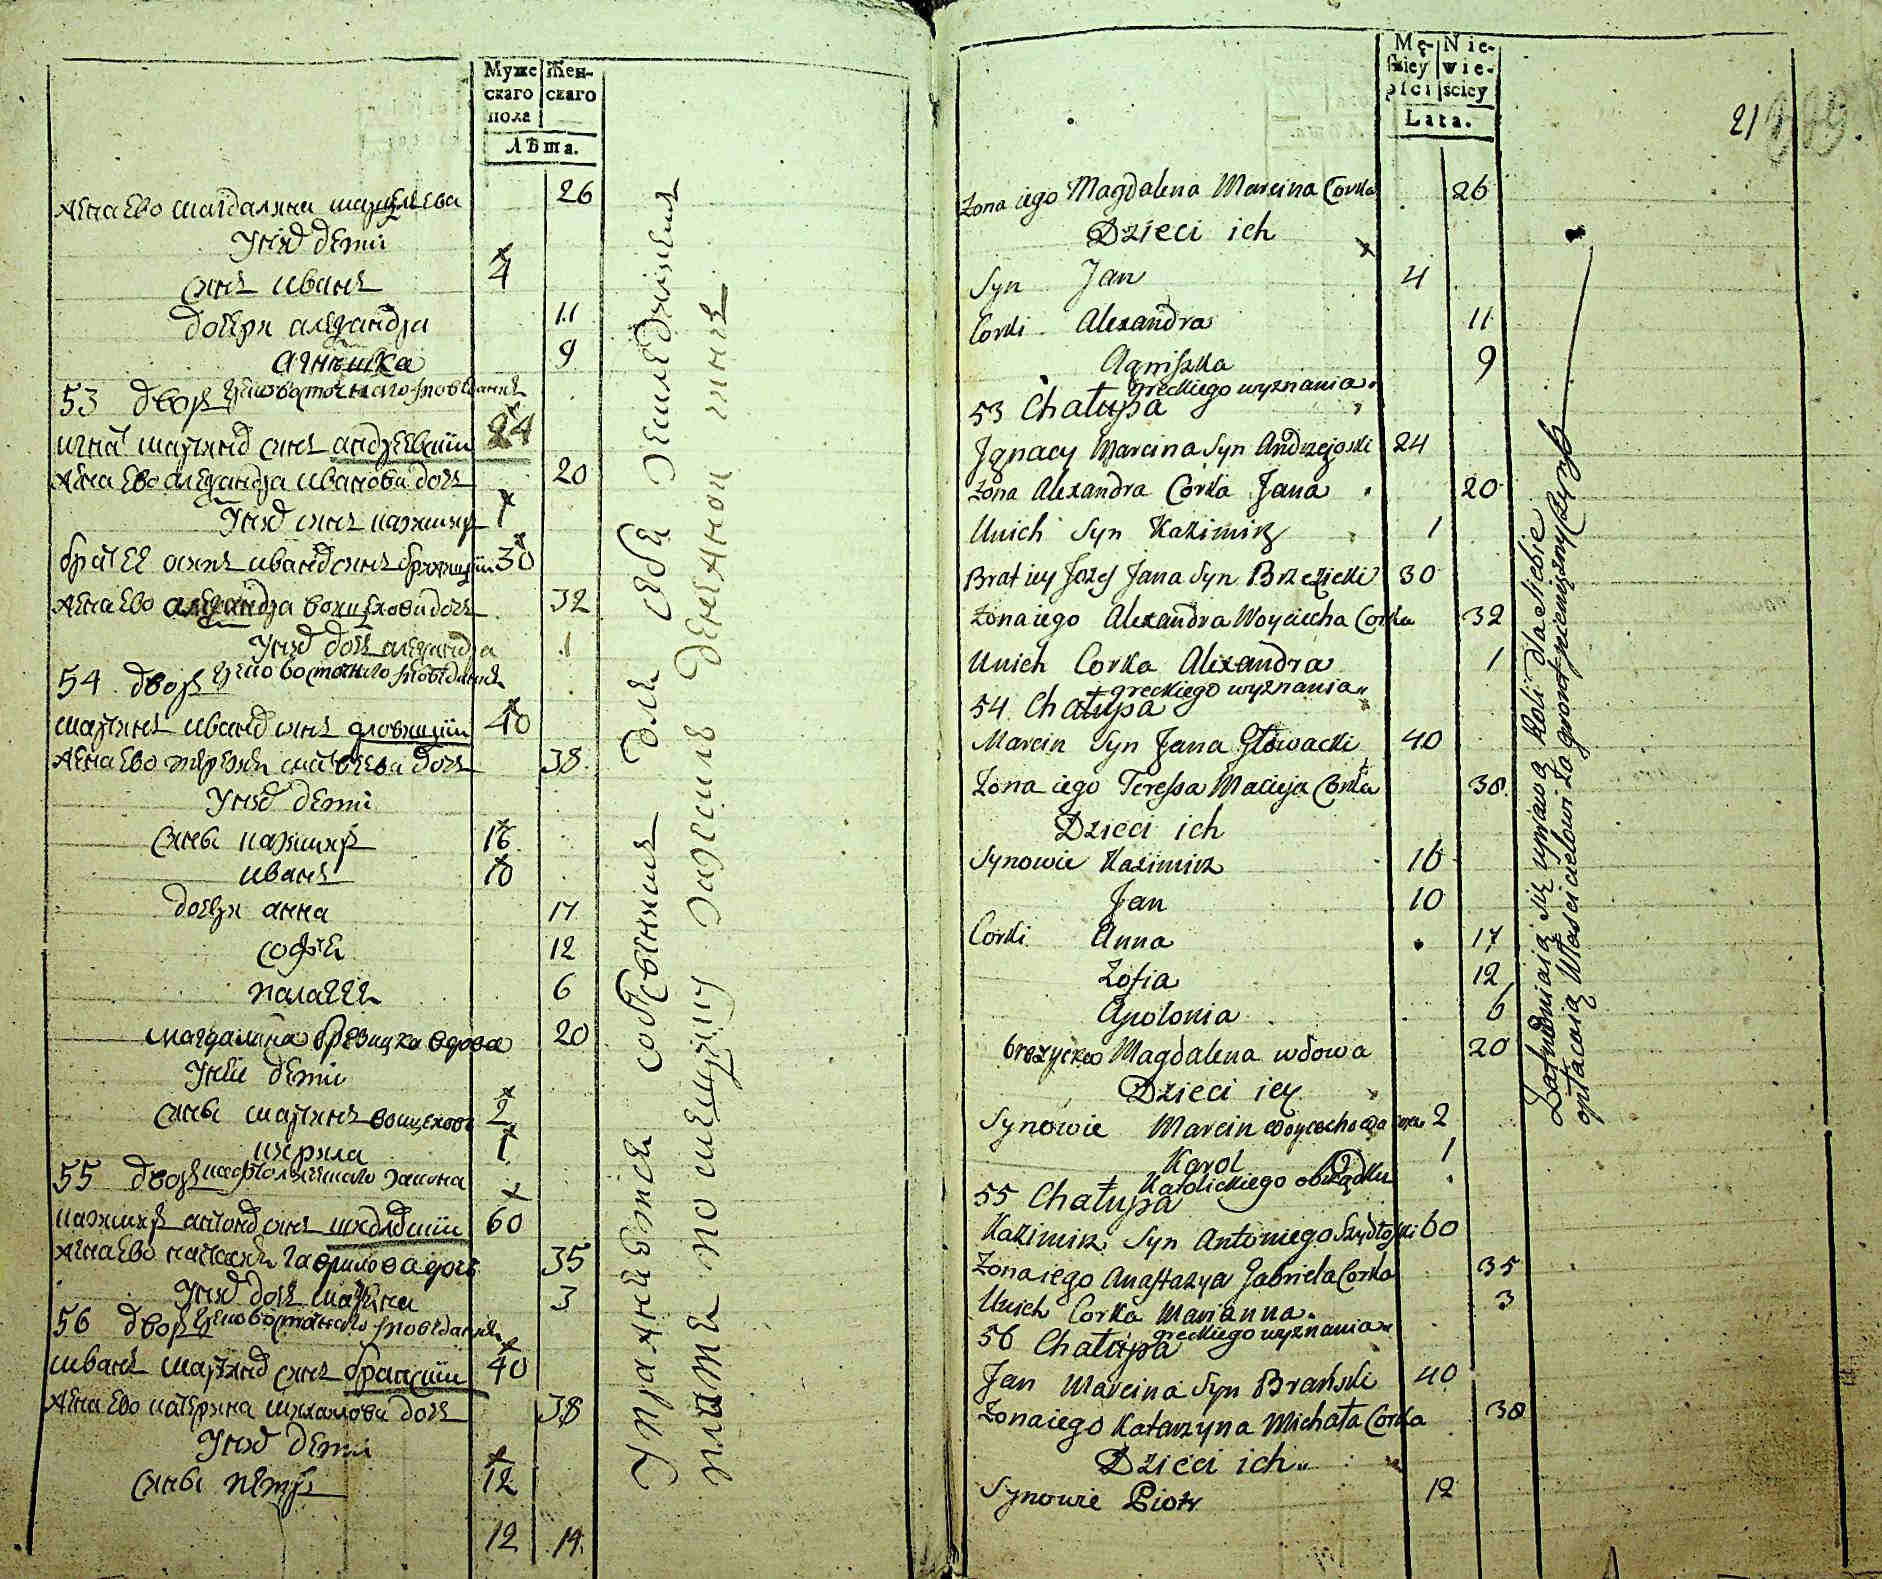 Муже Жен-
скаго скаго
пола
Лѣта.
жена ево магдалина 26
У них дети
синъ иванъ 4
дочери александра 11
агнешка 9
53 дворъ греко восточнаго исповедания
игнат мартинов синъ андреевский 24
жена ево александра иванова дочь 20
У них синъ казимир 1
брат ее осипъ иванов синъ бржезицкий 30
жена ево александра войцехова дочь 32
У них дочь александра 1
54 дворъ греко восточнаго исповедания
мартинъ иванов синъ гловацкий 40
жена ево терезия матвеева дочь 38
У них дети
сины казимир 16
иванъ 10
дочери анна 17
софия 12
палагея 6
магдалина брезицка вдова 20
У неи дети
сины мартинъ войцехов 2
кирила 1
55 дворъ католицкаго закона
казимир антонов синъ шидловский 60
жена ево настазия гаврилова дочь 35
У них дочь марина 3
56 дворъ греко восточнаго исповедания
иванъ мартинов синъ бранский 40
жена ево катерина михалова дочь 38
У них дети
сины петръ 12
12 14
Упражняется собственния для себя земледелия
платя помещику за землю денежной чинш
21
Mę- Nie-
skiey wie-
płci ściey
Lata.
Zona iego Magdalena Marcina Corka 26
Dzieci ich
Syn Jan 4
Corki Alexandra 11
Agniszka 9
53 Chałupa greckiego wyznania
Jgnacy Marcina Syn Andrzejoski 24
Zona Alexandra Corka Jana 20
Unich Syn Kazimirz 1
Brat iey Jozef Jana Syn Brzezicki 30
Zona iego Alexandra Woyciecha Corka 32
Unich Corka Alexandra 1
54 Chałupa greckiego wyznania
Marcin Syn Jana Głowacki 40
Zona iego Teressa Macieja Corka 38
Dzieci ich
Synowie Kazimirz 16
Jan 10
Corki Anna 17
Zofia 12
Apolonia 6
brezycka Magdalena wdowa 20
Dzieci iey
Synowie Marcin 2
Karol 1
55 Chałupa Katolickiego obrządku
Kazimirz Syn Antoniego Szydłoski 60
Zona iego Anastazya Gabriela Corka 35
Unich Corka Marianna 3
56 Chałupa greckiego wyznania
Jan Marcina Syn Brański 40
Zona iego Katarzyna Michała Corka 38
Dzieci ich
Synowie Piotr 12
Zatrudniaią się uprawą Roli dla siebie
opłacaią Własicielowi Za gront pieniężny Czynsz